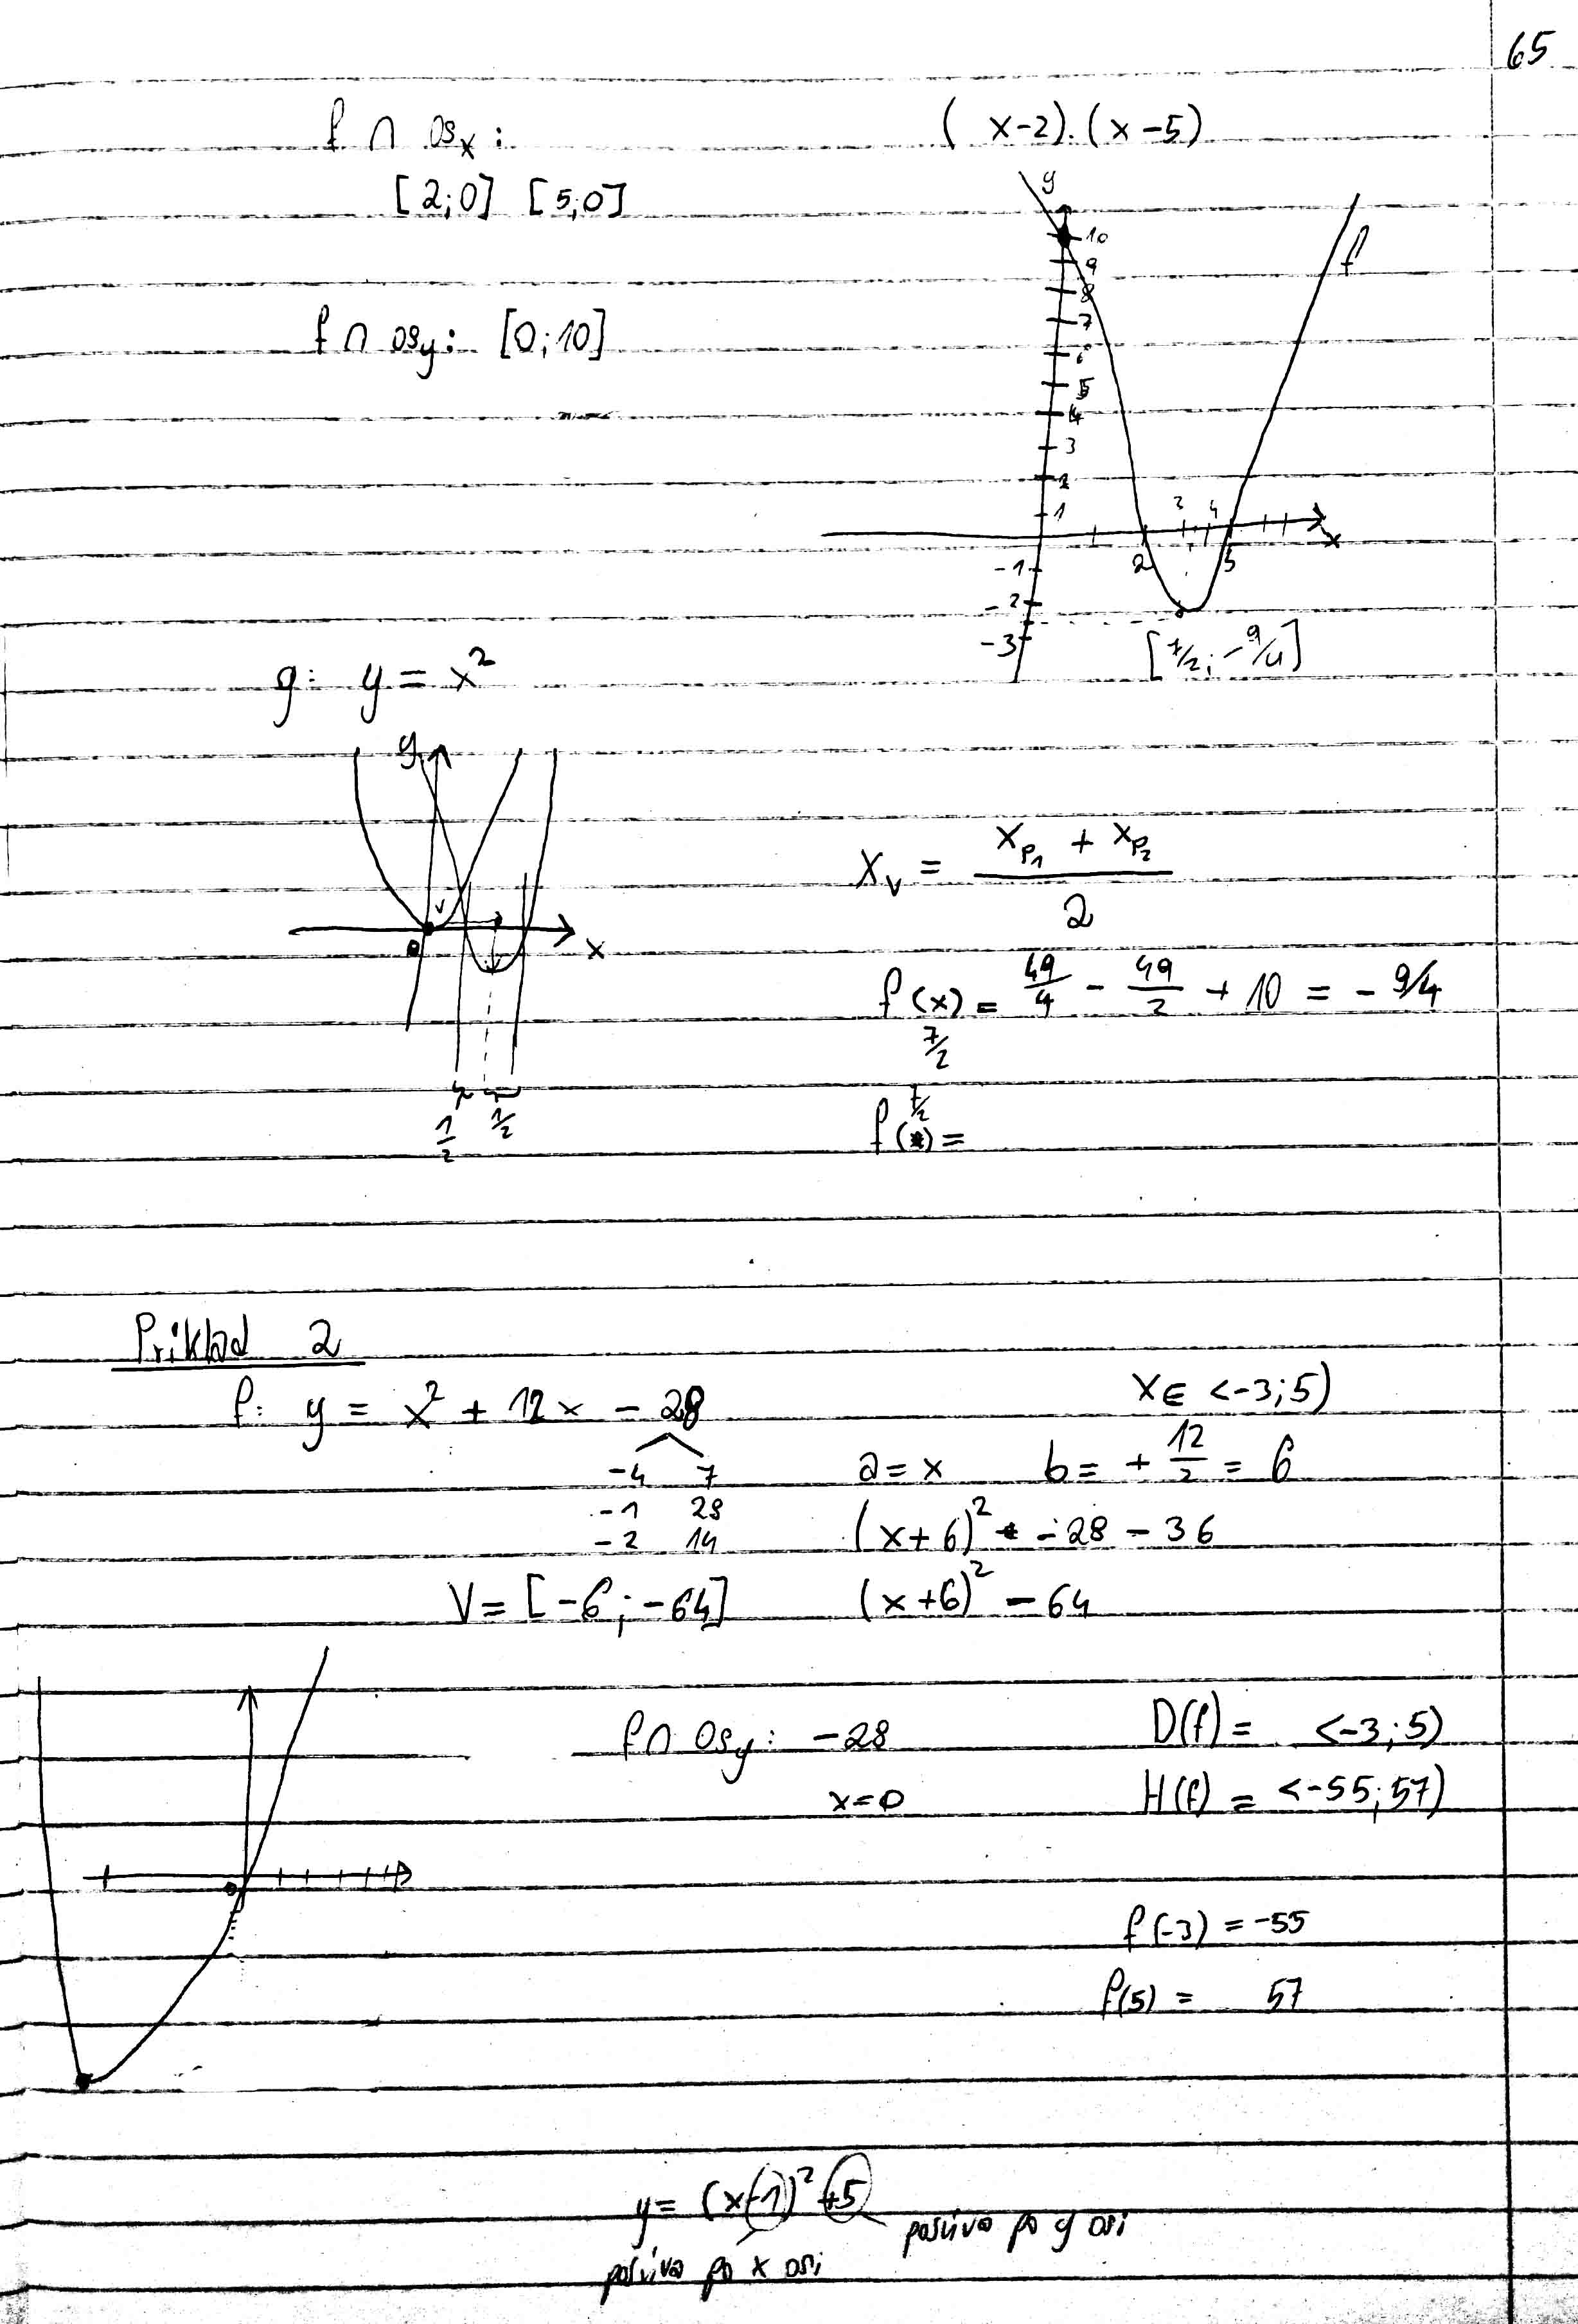 65
f ∩ os_x:
[2;0] [5;0]
(x-2).(x-5)
f ∩ os_y: [0;10]
y
10
9
8
7
6
5
4
3
2
1
-1
-2
-3
2
3
4
5
x
f
[7/2; -9/4]
g: y = x²
y
v
0
x
1/2
1/2
x_v = (x_p1 + x_p2)/2
f(x) = 49/4 - 49/2 + 10 = - 9/4
7/2
7/2
f( ) =
Priklad 2
f: y = x² + 12x - 28
x∈ <-3;5)
-4 7
-1 28
-2 14
a = x b = + 12/2 = 6
(x+6)² - 28 - 36
V = [-6; -64]
(x+6)² - 64
f ∩ os_y: -28
x=0
D(f) = <-3;5)
H(f) = <-55;57)
f(-3) = -55
f(5) = 57
y = (x-1)² +5
posúva po y osi
posúva po x osi